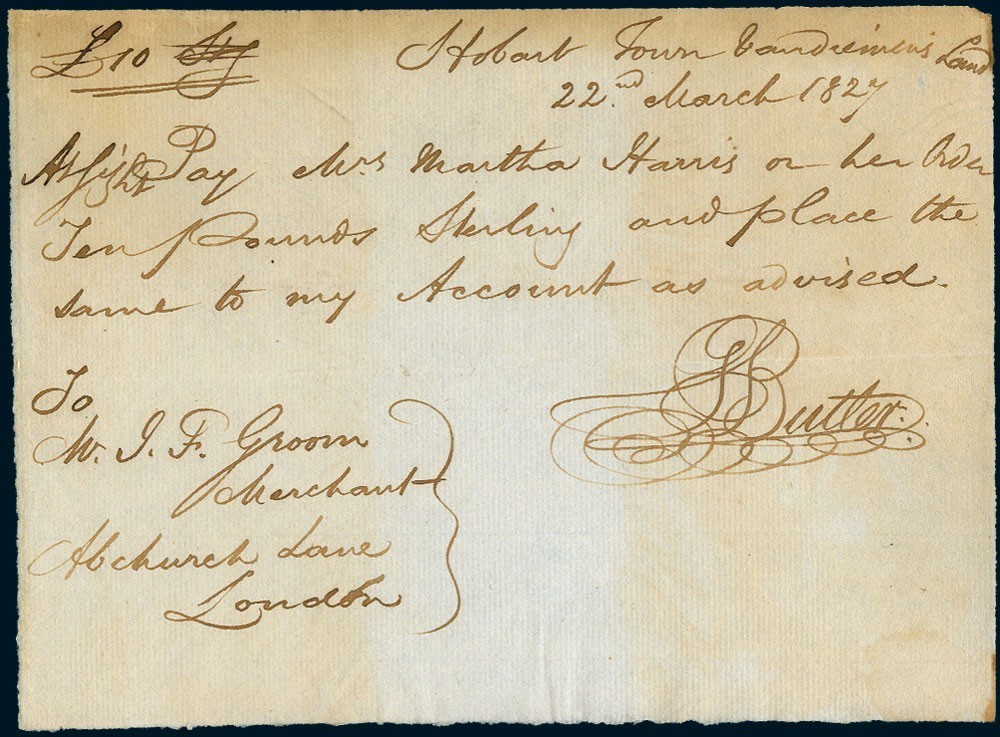 £10 Stg
Hobart Town Vandiemen's Land
22nd March 1827
At sight Pay Mrs Martha Harris or her Order
Ten Pounds Sterling and place the
same to my Account as advised.
Butler.
To
Mr. J. F. Groom
Merchant
Abchurch Lane
London